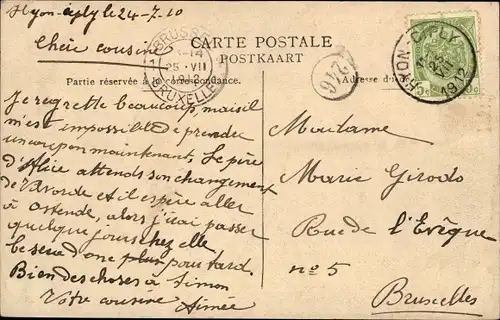 Hyon-Ciply le 24-7-10
Chère cousine
CARTE POSTALE
POSTKAART
Partie réservée à la correspondance.
Adresse du
BRUXELLES
25 VII
HYON-CIPLY
1912
246
Je regrette beaucoup, mais il
m'est impossible de prendre
un coupon maintenant. Le père
d'Alice attends son changement
de et il espère aller
à Ostende, alors j'irai passer
quelque jours chez elle
ce sera one plus pour tard.
Bien des choses à Simon
Votre cousine Aimée
Madame
Marie Girods
Rue de l'Evêque
no 5
Bruxelles